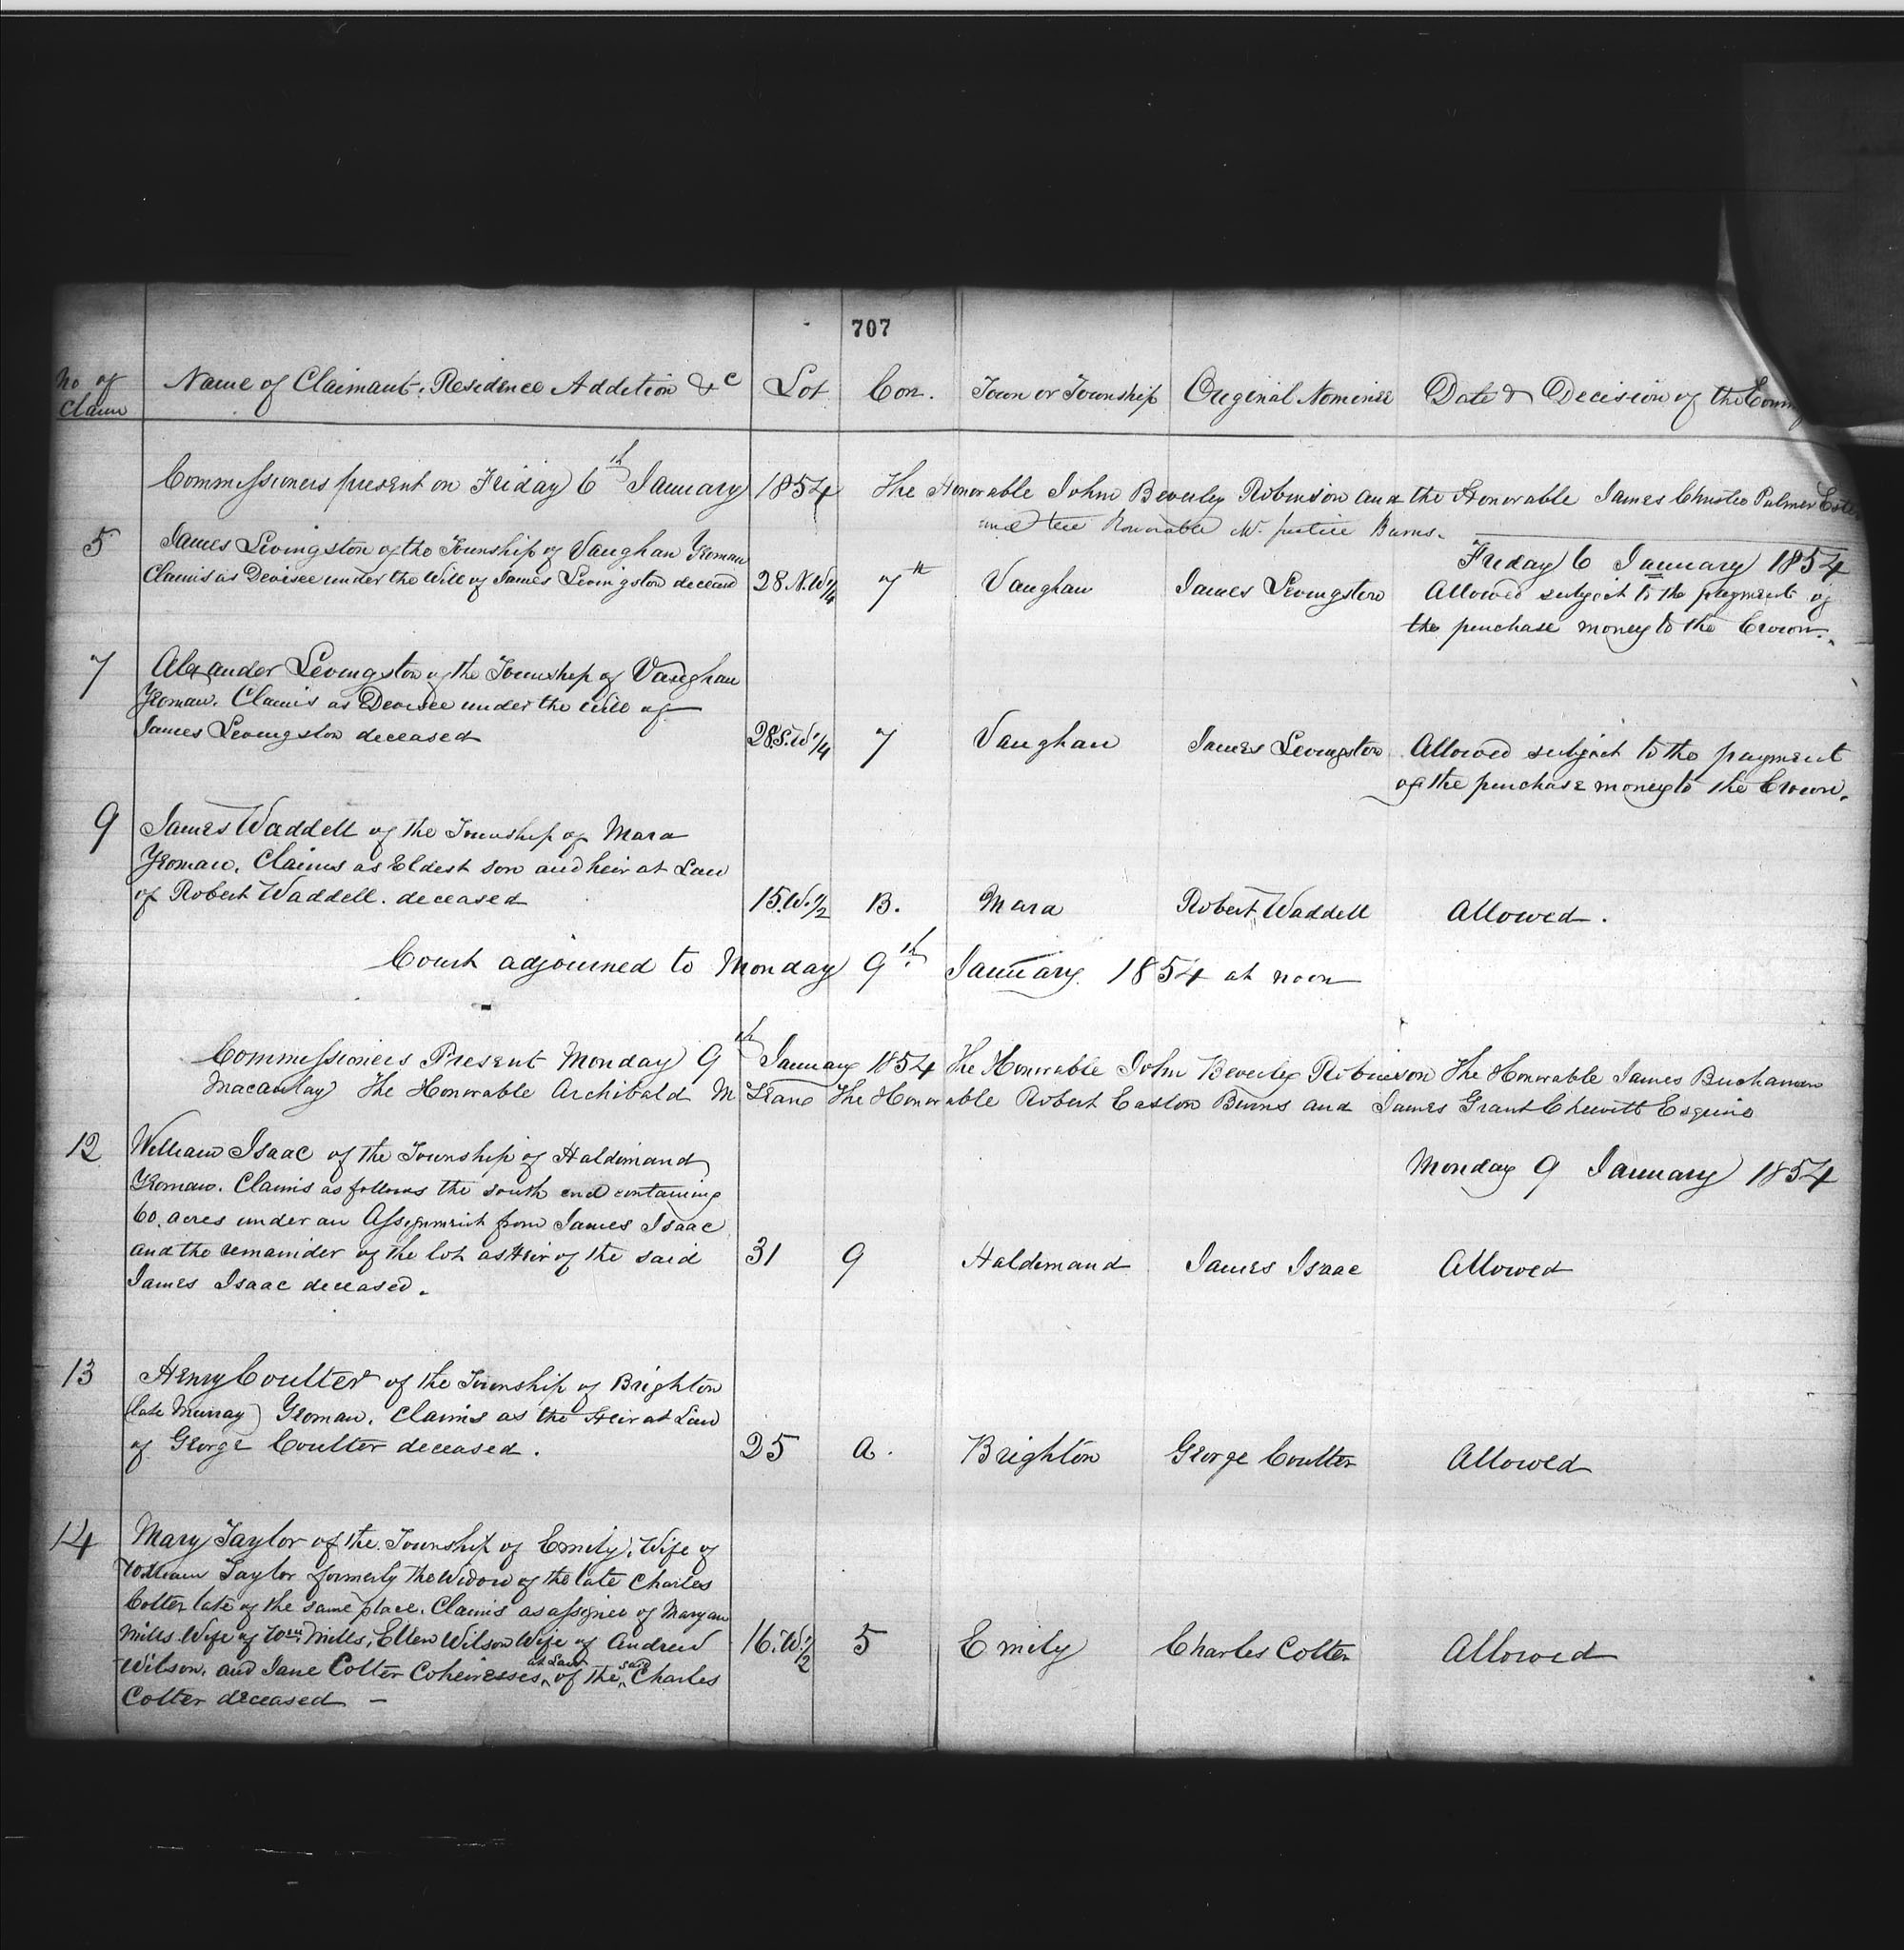 707
No of Claim
Name of Claimant, Residence Addition &c
Lot
Con.
Town or Township
Original Nominee
Date & Decision of the
Commissioners present on Friday 6th January 1854 The Honorable John Beverley Robinson and the Honorable James Christie Palmer
and the Honorable Mr Justice Burns.
Friday 6 January 1854
5
James Livingston of the Township of Vaughan Yeoman
Claims as Devisee under the Will of James Livingston deceased
28 N.W 1/4
7th
Vaughan
James Livingston
Allowed subject to the payment of
the purchase money to the Crown.
7
Alexander Livingston of the Township of Vaughan
Yeoman. Claims as Devisee under the will of
James Livingston deceased
28 S.W 1/4
7
Vaughan
James Livingston
Allowed subject to the payment
of the purchase money to the Crown.
9
James Waddell of the Township of Mara
Yeoman. Claims as Eldest son and heir at Law
of Robert Waddell. deceased
15.W. 1/2
B.
Mara
Robert Waddell
Allowed.
Court adjourned to Monday 9th January 1854 at noon
Commissioners Present Monday 9th January 1854 The Honorable John Beverley Robinson The Honorable James Buchanan
Macaulay The Honorable Archibald McLean The Honorable Robert Easton Burns and James Grant Chewett Esquire
Monday 9 January 1854
12
William Isaac of the Township of Haldimand
Yeoman. Claims as follows the south end containing
60. acres under an Assignment from James Isaac
and the remainder of the lot as Heir of the said
James Isaac deceased.
31
9
Haldimand
James Isaac
Allowed
13
Henry Coulter of the Township of Brighton
(late Murray) Yeoman. Claims as the Heir at Law
of George Coulter deceased.
25
A.
Brighton
George Coulter
Allowed
14
Mary Taylor of the Township of Emily, Wife of
William Taylor formerly the Widow of the late Charles
Cotter late of the same place. Claims as assignee of Mary an
Mills Wife of Wm Mills, Ellen Wilson Wife of Andrew
Wilson, and Jane Cotter Coheiresses at Law of the said Charles
Cotter deceased —
16. W. 1/2
5
Emily
Charles Cotter
Allowed